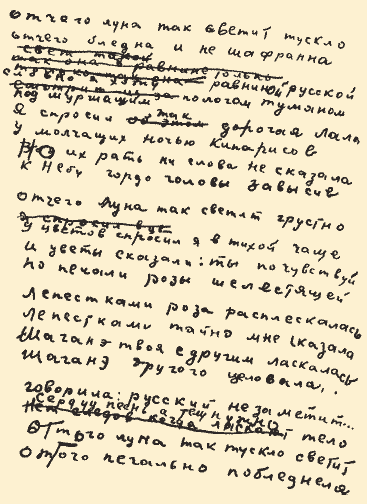 отчего луна так светит тускло
отчего бледна и не шафранна
свет такой
так она в равнине только
словно я
равниной русской
под шуршащим пологом туманом
Я спросил об этом так дорогая Лала
У молчащих ночью кипарисов
Но их рать ни слова не сказала
К небу гордо головы завысив
отчего луна так светит грустно
Я спросил
У цветов спросил я в тихой чаще
И цветы сказали: ты почувствуй
По печали розы шелестящей
Лепестками роза расплескалась
Лепестками тайно мне сказала
Шаганэ твоя с другим ласкалась
Шаганэ другого целовала..
говорила: русский не заметит...
Сердцу песнь а песне жизнь и тело
Оттого луна так тускло светит
Оттого печально побледнела